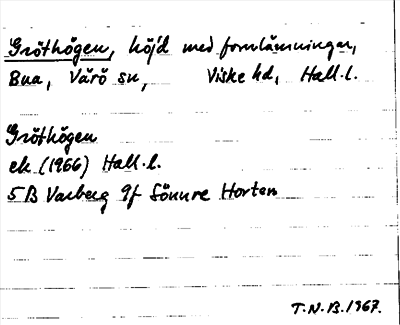 Gröthögen, höjd med fornlämningar,
Bua, Värö sn, Viske hd, Hall.l.
Gröthögen
ek (1966) Hall.l.
5B Varberg 9f Sönnre Horten
T.N.B. 1967.